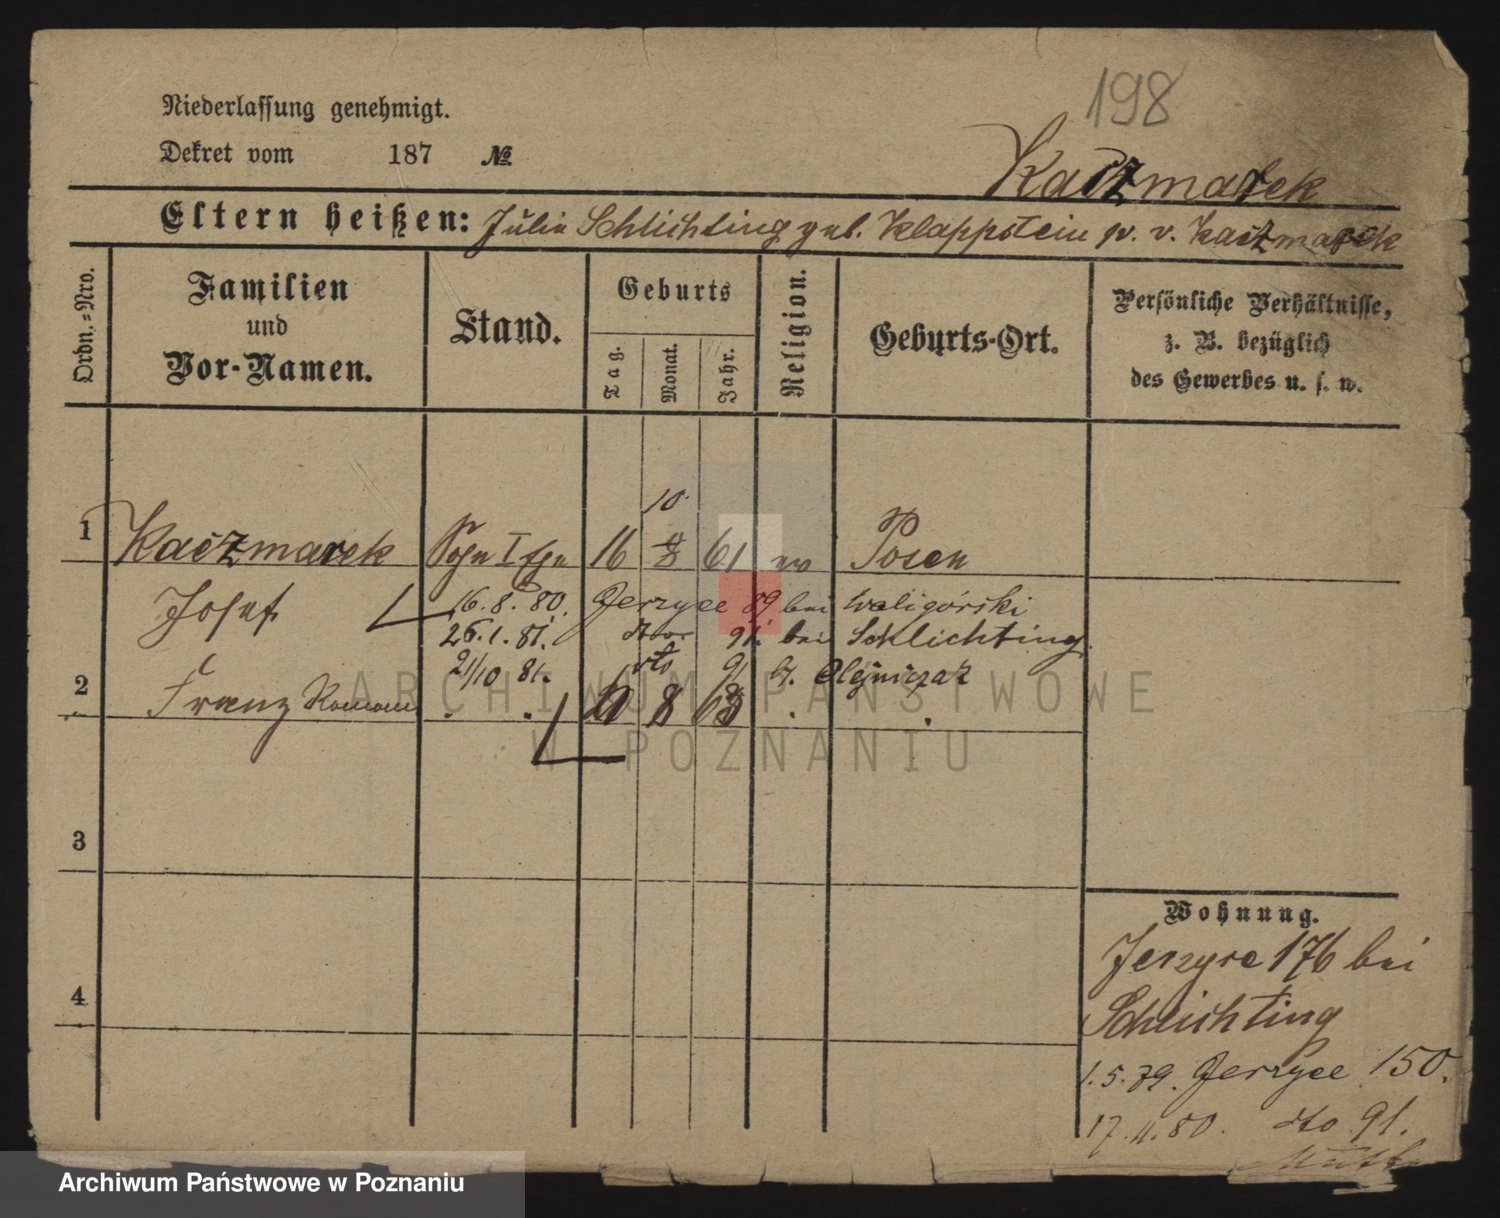 198
Niederlassung genehmigt.
Dekret vom 187 №
Kaczmarek
Eltern heißen: Julie Schlichting geb. Klappstein gv. v. Kaczmarek
Ordn.-Nro.
Familien und Vor-Namen.
Stand.
Geburts
Tag. Monat. Jahr.
Religion.
Geburts-Ort.
Persönliche Verhältnisse, z. B. bezüglich des Gewerbes u. s. w.
10
1 Kaczmarek Sohn I Ehe 16 8 61 ev Posen
Josef 16. 8. 80. Jerzyce 89 bei Waligórski
26. 1. 81. dto 91. bei Schlichting
21/10 81. dto 91 b. Olejniczak
2 Franz Roman 8 63
3
4
Wohnung.
Jerzyce 176 bei
Schlichting
1. 5. 79. Jerzyce 150.
17. 11. 80. dto 91.
ARCHIWUM PAŃSTWOWE
W POZNANIU
Archiwum Państwowe w Poznaniu